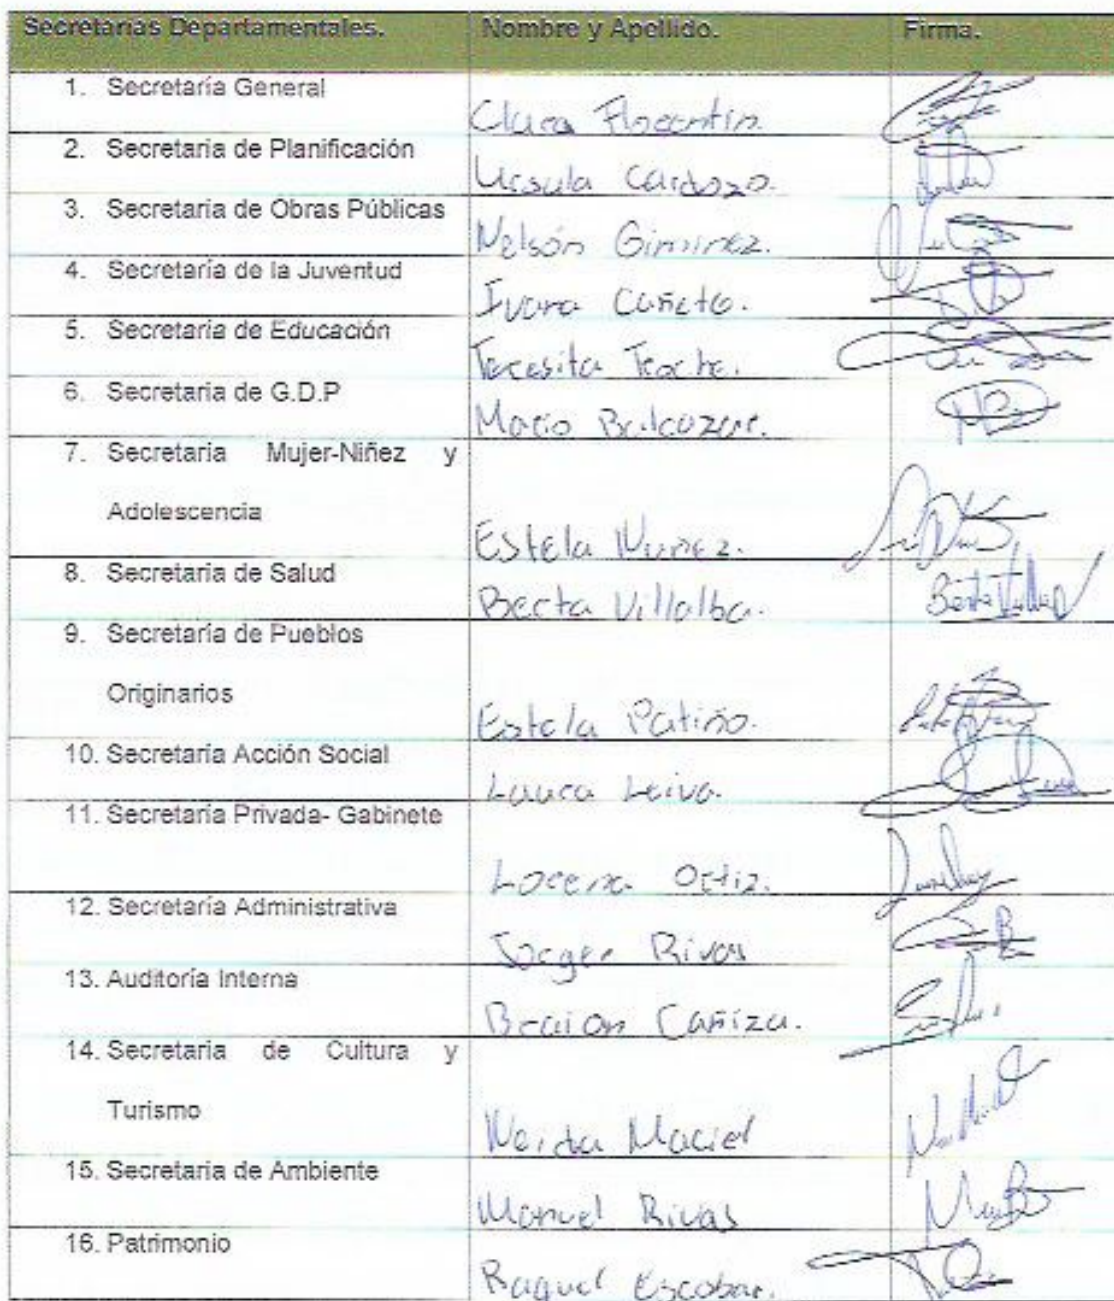 Secretarias Departamentales. Nombre y Apellido. Firma.
1. Secretaría General
Clara Florentín.
2. Secretaria de Planificación
Ursula Cardozo.
3. Secretaria de Obras Públicas
Nelsón Giminez.
4. Secretaría de la Juventud
Ivana Cañete.
5. Secretaría de Educación
Teresita
6. Secretaria de G.D.P
Mario Balcazar.
7. Secretaria Mujer-Niñez y
Adolescencia
Estela Nuñez.
8. Secretaria de Salud
Berta Villalba.
Berta
9. Secretaría de Pueblos
Originarios
Estela Patiño.
10. Secretaría Acción Social
Laura Leiva.
11. Secretaría Privada- Gabinete
Lorena Ortiz.
12. Secretaría Administrativa
Rivas
13. Auditoría Interna
Braion Cañiza.
14. Secretaria de Cultura y
Turismo
Neida Maciel
15. Secretaria de Ambiente
Manuel Rivas
16. Patrimonio
Raquel Escobar.